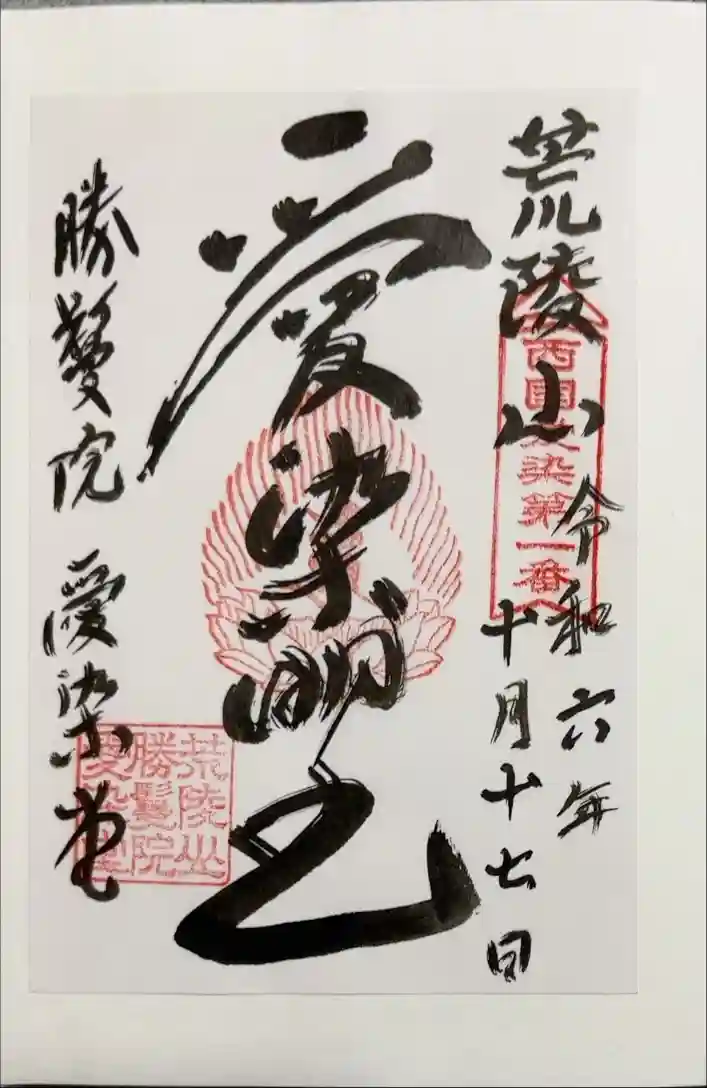 荒陵山
西国愛染第一番
令和六年
十月十七日
愛染明王
勝鬘院 愛染堂
荒陵山
勝鬘院
愛染堂